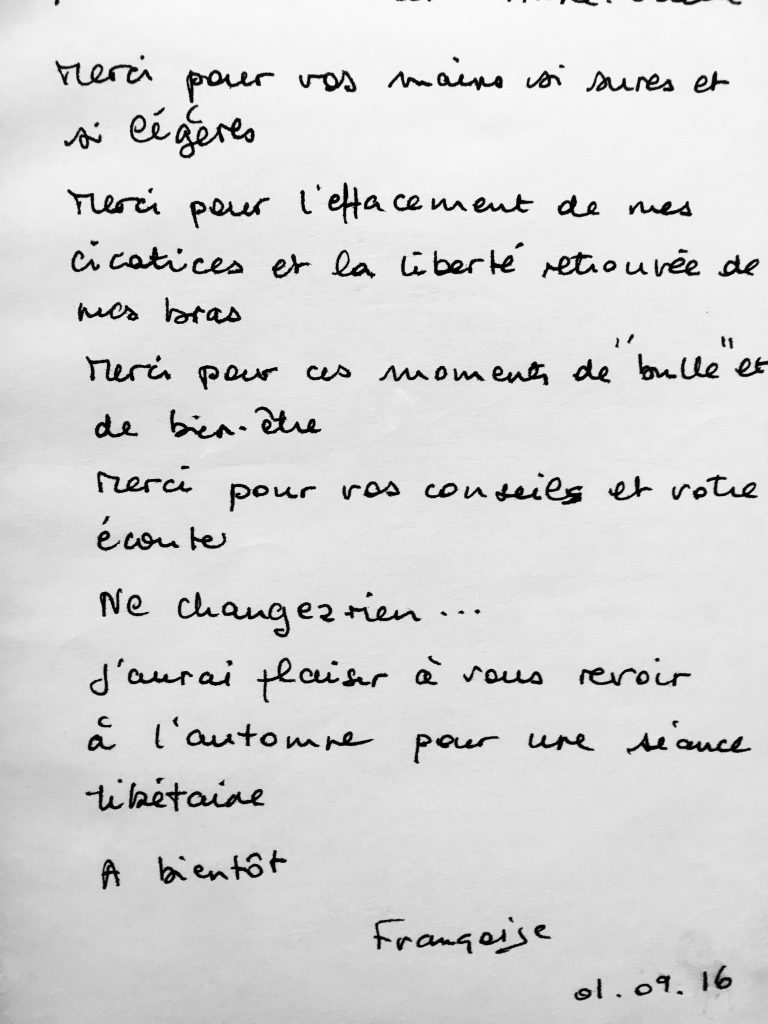 Merci pour vos mains si sures et
si légères
Merci pour l'effacement de mes
cicatices et la liberté retrouvée de
mes bras
Merci pour ces moments de "bulle" et
de bien-être
Merci pour vos conseils et votre
écoute
Ne changez rien...
J'aurai plaisir à vous revoir
à l'automne pour une séance
tibétaine
A bientôt
Françoise
01.09.16